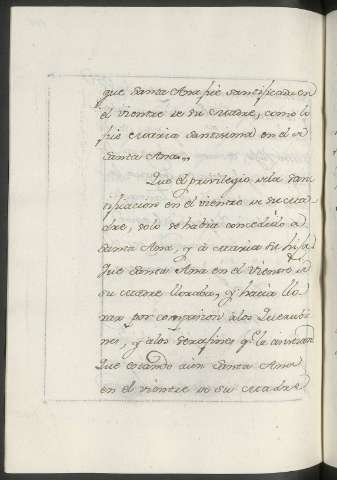 que Santa Ana fue Santificada en
el vientre de su Madre, como lo
fue Maria Santisima en el de
Santa Ana,,
Que el privilegio dela San
tificacion en el vientre de su Ma
dre, solo se habia concedido a
Santa Ana, y â Maria su hija
Que Santa Ana en el Vientre de
su Madre lloraba, y hacia llo
rar por compasion alos Querubi
nes, y alos Serafines
Que estando aun Santa Ana
en el vientre de su Madre